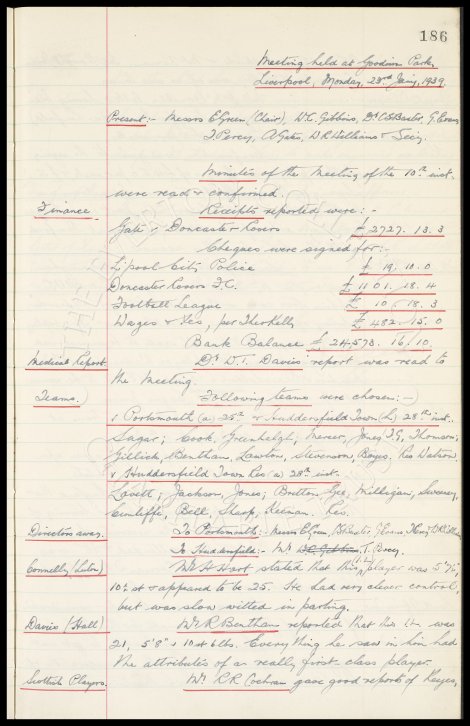 186
Meeting held at Goodison Park,
Liverpool, Monday, 23rd Jany, 1939.
Present:- Messrs E. Green, (Chair), W.C. Gibbins, Dr C.S. Baxter, G. Evans,
T. Percy, A. Gates, W.R. Williams & Secy.
Minutes of the Meeting of the 10th inst.
were read & confirmed.
Finance. Receipts reported were:-
Gate v Doncaster Rovers £2727. 13. 3
Cheques were signed for:-
L'pool City Police £ 19. 10. 0
Doncaster Rovers F.C. £1101. 18. 4
Football League £ 10. 18. 3
Wages & Fees, per Theo Kelly £ 482. 15. 0
Bank Balance £24,573. 16. 10
Medical Report. Dr. W.T. Davies' report was read to
the meeting.
Teams. Following teams were chosen:-
v Portsmouth (a) 25th & Huddersfield Town (h) 28th inst.
Sagar; Cook, Greenhalgh; Mercer, Jones T.G., Thomson;
Gillick, Bentham, Lawton, Stevenson, Boyes. Res Watson
v Huddersfield Town Res (a) 28th inst.
Lovett; Jackson, Jones; Britton, Gee, Milligan; Sweeney,
Cunliffe, Bell, Sharp, Keenan. Res.
Directors away. To Portsmouth:- Messrs E. Green, Baxter, Evans, & W.R. Williams
To Huddersfield:- Mr. W.C. Gibbins, T. Percy.
Connelly, (Luton) Mr. H. Hart stated that this player was 5'7½",
10½ st & appeared to be 25. He had very clever control,
but was slow witted in parting.
Davies (Hall) Mr. R. Bentham reported that this was
21, 5'8" & 10 st 6 lbs. Everything he saw in him had
the attributes of a really first class player.
Scottish Players. Mr. R.R. Cochran gave good reports of Keyes,